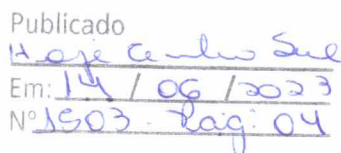 Publicado
Hoje Centro Sul
Em: 14 / 06 / 2023
Nº 1503 - Pág: 04